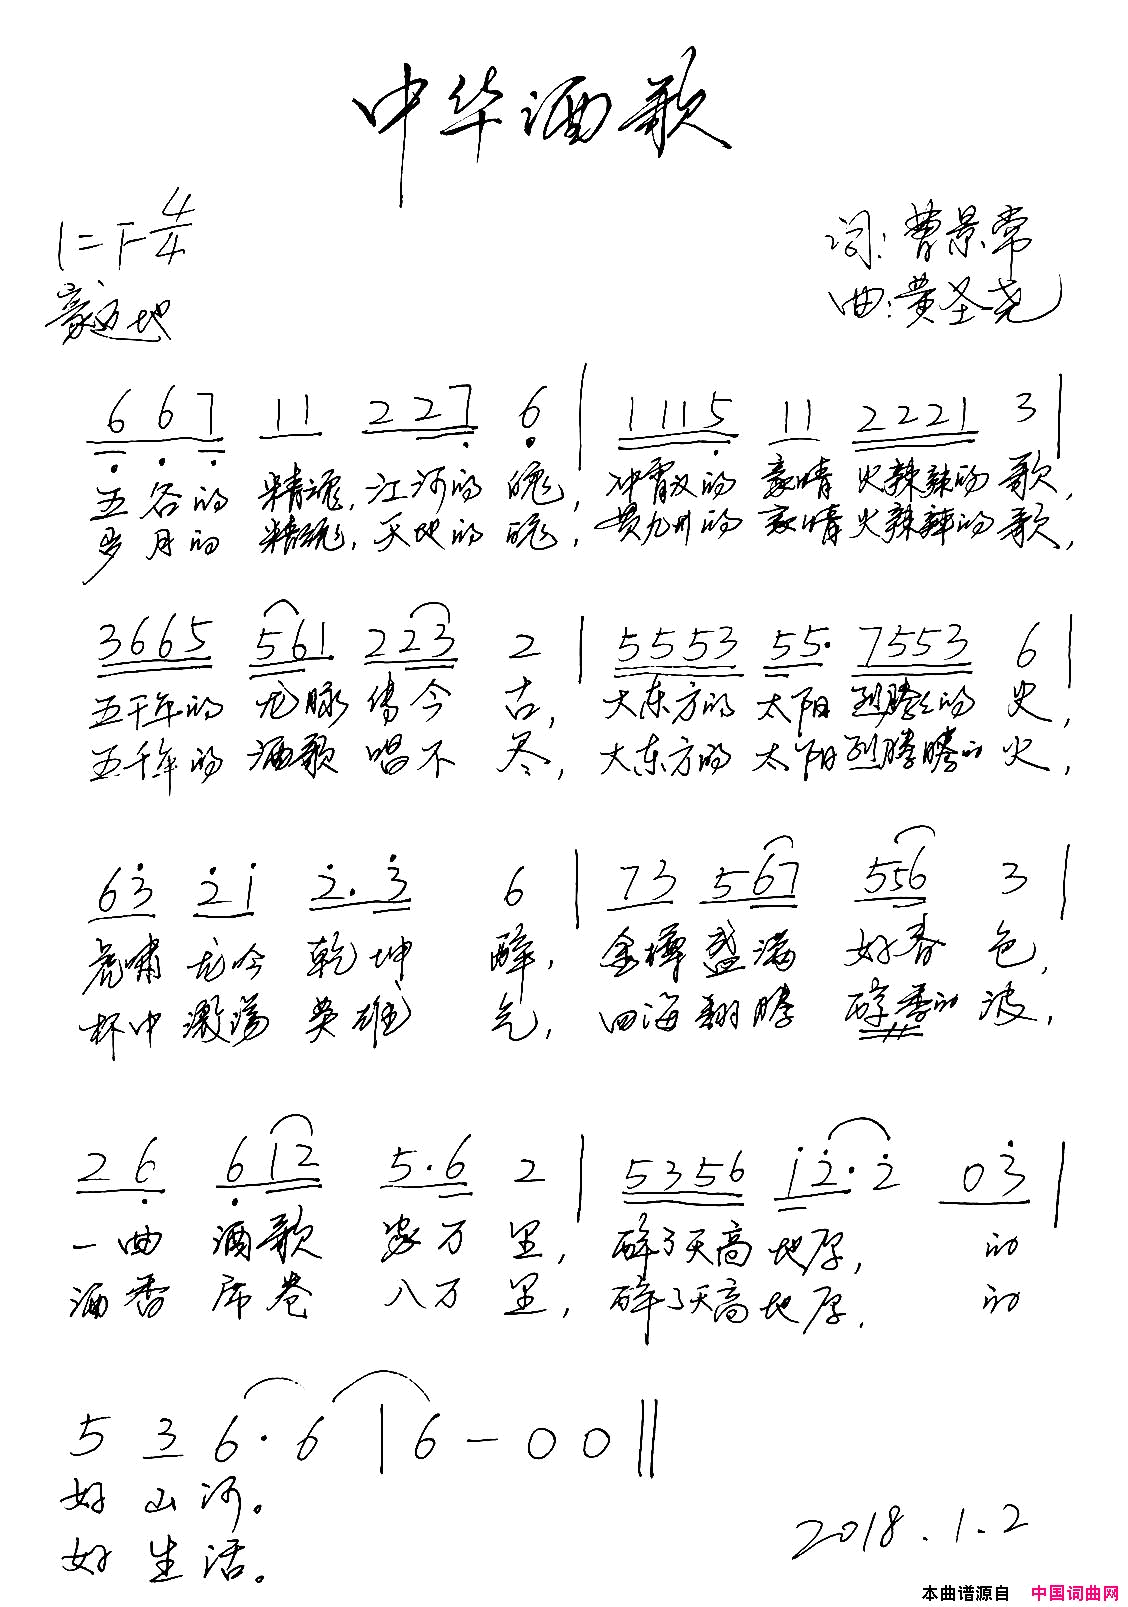 中华酒歌
1=F 4/4
词:曹景常
豪迈地
曲:黄圣尧
6 6 7 1 1 2 2 7 6 | 1 1 1 5 1 1 2 2 2 1 3 |
五谷的 精魂,江河的 魄, 冲霄汉的 豪情 火辣辣的 歌,
岁月的 精魂,天地的 魄, 贯九州的 豪情 火辣辣的 歌,
3 6 6 5 5 6 1 2 2 3 2 | 5 5 5 3 5 5· 7 5 5 3 6 |
五千年的 龙脉 传今 古, 大东方的 太阳 烈腾腾的 火,
五千年的 酒歌 唱不 尽, 大东方的 太阳 烈腾腾的 火,
6 3 2 1 2· 3 6 | 7 3 5 6 7 5 5 6 3 |
虎啸 龙吟 乾坤 醉, 金樽 盛满 好春 色,
杯中 激荡 英雄 气, 四海 翻腾 醇香的 波,
2 6 6 1 2 5·6 2 | 5 3 5 6 1 2·2 0 3 |
一曲 酒歌 家万 里, 醉了天高 地厚, 的
酒香 席卷 八万 里, 醉了天高 地厚, 的
5 3 6·6 | 6 - 0 0 ‖
好 山 河。
好 生 活。
2018.1.2
本曲谱源自 中国词曲网